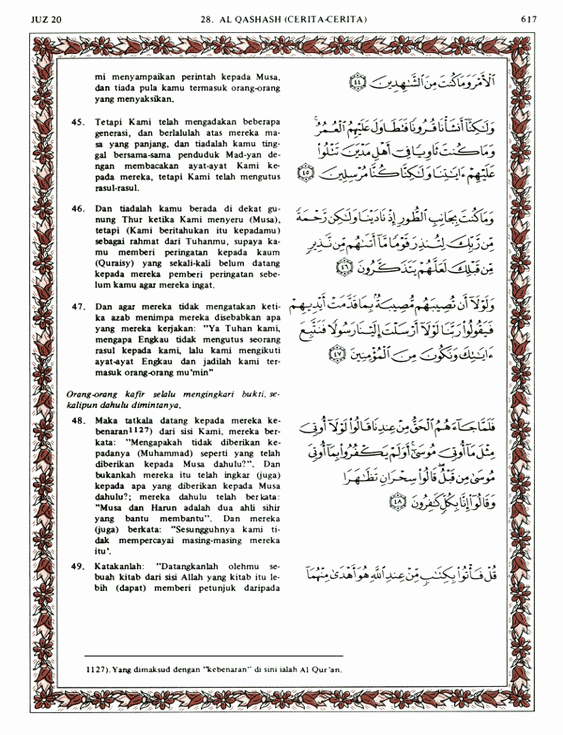 JUZ 20 28. AL QASHASH (CERITA-CERITA) 617
mi menyampaikan perintah kepada Musa,
dan tiada pula kamu termasuk orang-orang
yang menyaksikan.
ٱلْأَمْرَ وَمَا كُنتَ مِنَ ٱلشَّـٰهِدِينَ ٤٤
45. Tetapi Kami telah mengadakan beberapa
generasi, dan berlalulah atas mereka ma-
sa yang panjang, dan tiadalah kamu ting-
gal bersama-sama penduduk Mad-yan de-
ngan membacakan ayat-ayat Kami ke-
pada mereka, tetapi Kami telah mengutus
rasul-rasul.
وَلَـٰكِنَّآ أَنشَأْنَا قُرُونًا فَتَطَاوَلَ عَلَيْهِمُ ٱلْعُمُرُ ۚ
وَمَا كُنتَ ثَاوِيًا فِىٓ أَهْلِ مَدْيَنَ تَتْلُوا۟
عَلَيْهِمْ ءَايَـٰتِنَا وَلَـٰكِنَّا كُنَّا مُرْسِلِينَ ٤٥
46. Dan tiadalah kamu berada di dekat gu-
nung Thur ketika Kami menyeru (Musa),
tetapi (Kami beritahukan itu kepadamu)
sebagai rahmat dari Tuhanmu, supaya ka-
mu memberi peringatan kepada kaum
(Quraisy) yang sekali-kali belum datang
kepada mereka pemberi peringatan sebe-
lum kamu agar mereka ingat.
وَمَا كُنتَ بِجَانِبِ ٱلطُّورِ إِذْ نَادَيْنَا وَلَـٰكِن رَّحْمَةً
مِّن رَّبِّكَ لِتُنذِرَ قَوْمًا مَّآ أَتَىٰهُم مِّن نَّذِيرٍ
مِّن قَبْلِكَ لَعَلَّهُمْ يَتَذَكَّرُونَ ٤٦
47. Dan agar mereka tidak mengatakan keti-
ka azab menimpa mereka disebabkan apa
yang mereka kerjakan: "Ya Tuhan kami,
mengapa Engkau tidak mengutus seorang
rasul kepada kami, lalu kami mengikuti
ayat-ayat Engkau dan jadilah kami ter-
masuk orang-orang mu'min"
وَلَوْلَآ أَن تُصِيبَهُم مُّصِيبَةٌۢ بِمَا قَدَّمَتْ أَيْدِيهِمْ
فَيَقُولُوا۟ رَبَّنَا لَوْلَآ أَرْسَلْتَ إِلَيْنَا رَسُولًا فَنَتَّبِعَ
ءَايَـٰتِكَ وَنَكُونَ مِنَ ٱلْمُؤْمِنِينَ ٤٧
Orang-orang kafir selalu mengingkari bukti, se-
kalipun dahulu dimintanya.
48. Maka tatkala datang kepada mereka ke-
benaran1127) dari sisi Kami, mereka ber-
kata: "Mengapakah tidak diberikan ke-
padanya (Muhammad) seperti yang telah
diberikan kepada Musa dahulu?". Dan
bukankah mereka itu telah ingkar (juga)
kepada apa yang diberikan kepada Musa
dahulu?; mereka dahulu telah berkata:
"Musa dan Harun adalah dua ahli sihir
yang bantu membantu". Dan mereka
(juga) berkata: "Sesungguhnya kami ti-
dak mempercayai masing-masing mereka
itu'.
فَلَمَّا جَآءَهُمُ ٱلْحَقُّ مِنْ عِندِنَا قَالُوا۟ لَوْلَآ أُوتِىَ
مِثْلَ مَآ أُوتِىَ مُوسَىٰٓ ۚ أَوَلَمْ يَكْفُرُوا۟ بِمَآ أُوتِىَ
مُوسَىٰ مِن قَبْلُ ۖ قَالُوا۟ سِحْرَانِ تَظَـٰهَرَا
وَقَالُوٓا۟ إِنَّا بِكُلٍّ كَـٰفِرُونَ ٤٨
49. Katakanlah: "Datangkanlah olehmu se-
buah kitab dari sisi Allah yang kitab itu le-
bih (dapat) memberi petunjuk daripada
قُلْ فَأْتُوا۟ بِكِتَـٰبٍ مِّنْ عِندِ ٱللَّهِ هُوَ أَهْدَىٰ مِنْهُمَآ
1127). Yang dimaksud dengan "kebenaran" di sini ialah Al Qur'an.